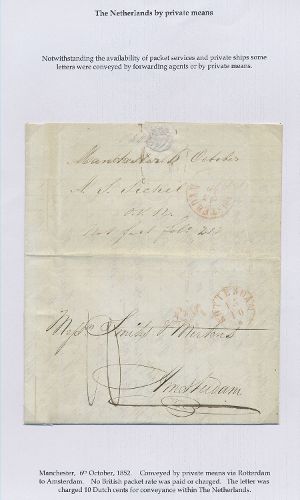 The Netherlands by private means
Notwithstanding the availability of packet services and private ships some
letters were conveyed by forwarding agents or by private means.
Manchester 6 October
A. S. Sichel
Mess Smits & Mertens
Amsterdam
ROTTERDAM
Manchester, 6th October, 1852. Conveyed by private means via Rotterdam
to Amsterdam. No British packet rate was paid or charged. The letter was
charged 10 Dutch cents for conveyance within The Netherlands.